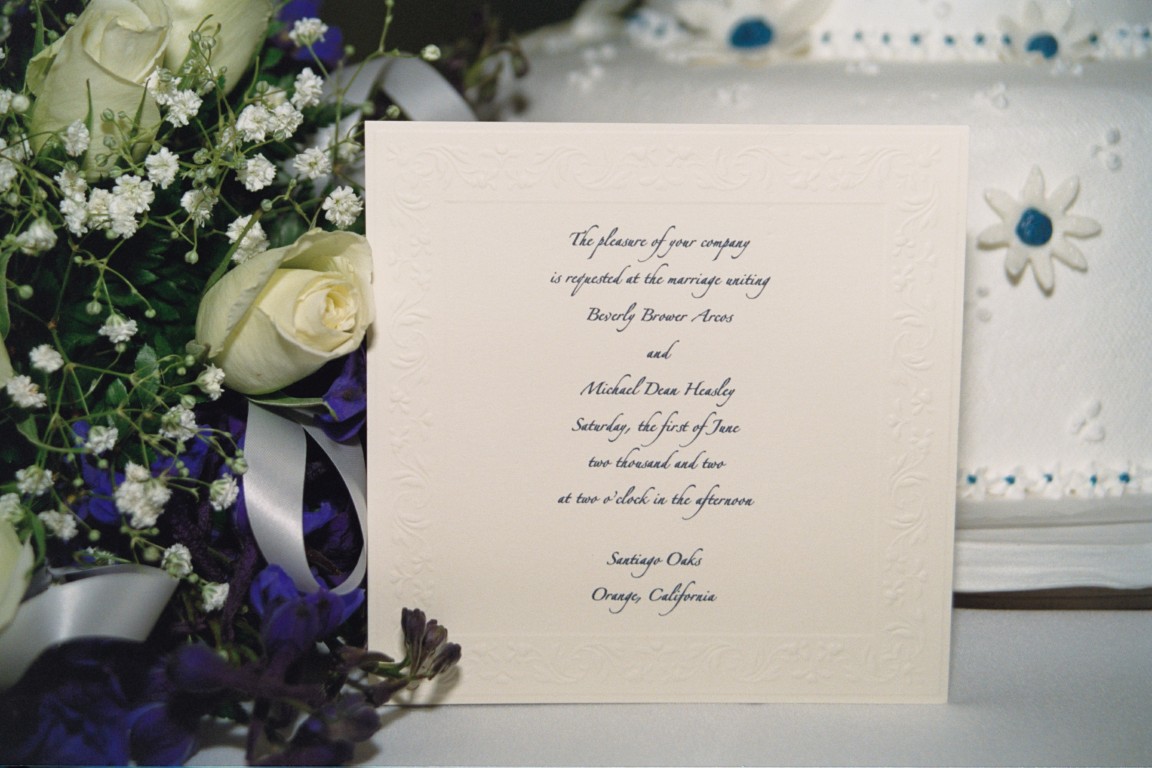 The pleasure of your company
is requested at the marriage uniting
Beverly Brower Arcos
and
Michael Dean Heasley
Saturday, the first of June
two thousand and two
at two o'clock in the afternoon
Santiago Oaks
Orange, California